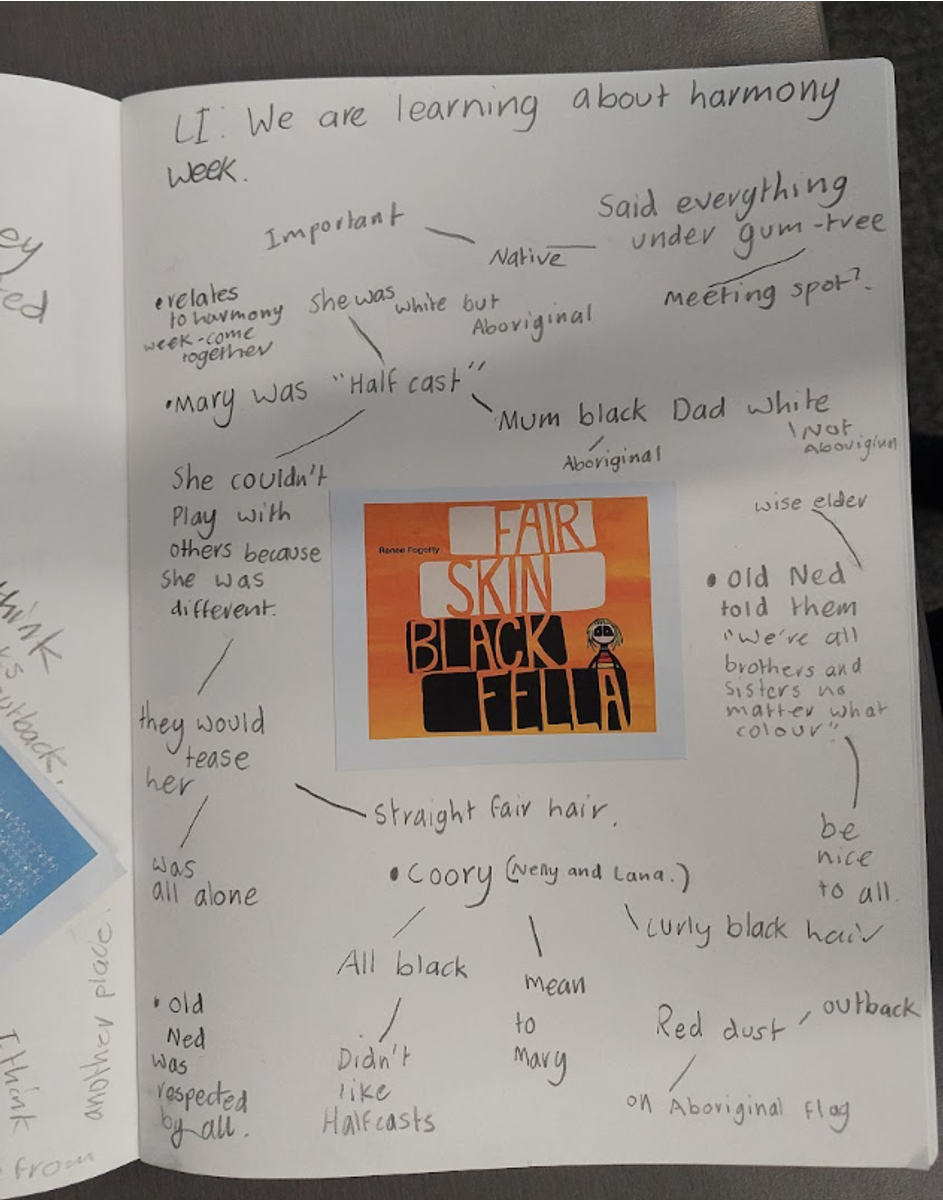 LI: We are learning about harmony
week.
Important
Native
Said everything
under gum-tree
meeting spot?
•relates
to harmony
week-come
together
She was white but
Aboriginal
•Mary was "Half cast"
Mum black Dad white
Aboriginal
Not
She couldn't
Play with
others because
she was
different.
they would
tease
her
was
all alone
straight fair hair.
Renee Fogorty
FAIR
SKIN
BLACK
FELLA
wise elder
• Old Ned
told them
"we're all
brothers and
sisters no
matter what
colour"
be
nice
to all.
• Coory (Nelly and Lana.)
All black
Didn't
like
Halfcasts
mean
to
Mary
curly black hair
• Old
Ned
was
respected
by all.
Red dust
outback
on Aboriginal flag
outback.
another place.
I think
from